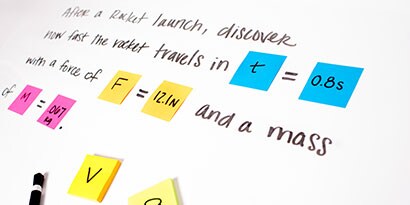 After a Rocket launch, discover
how fast the rocket travels in t = 0.8s
with a force of F = 12.1N and a mass
of M = .067
V